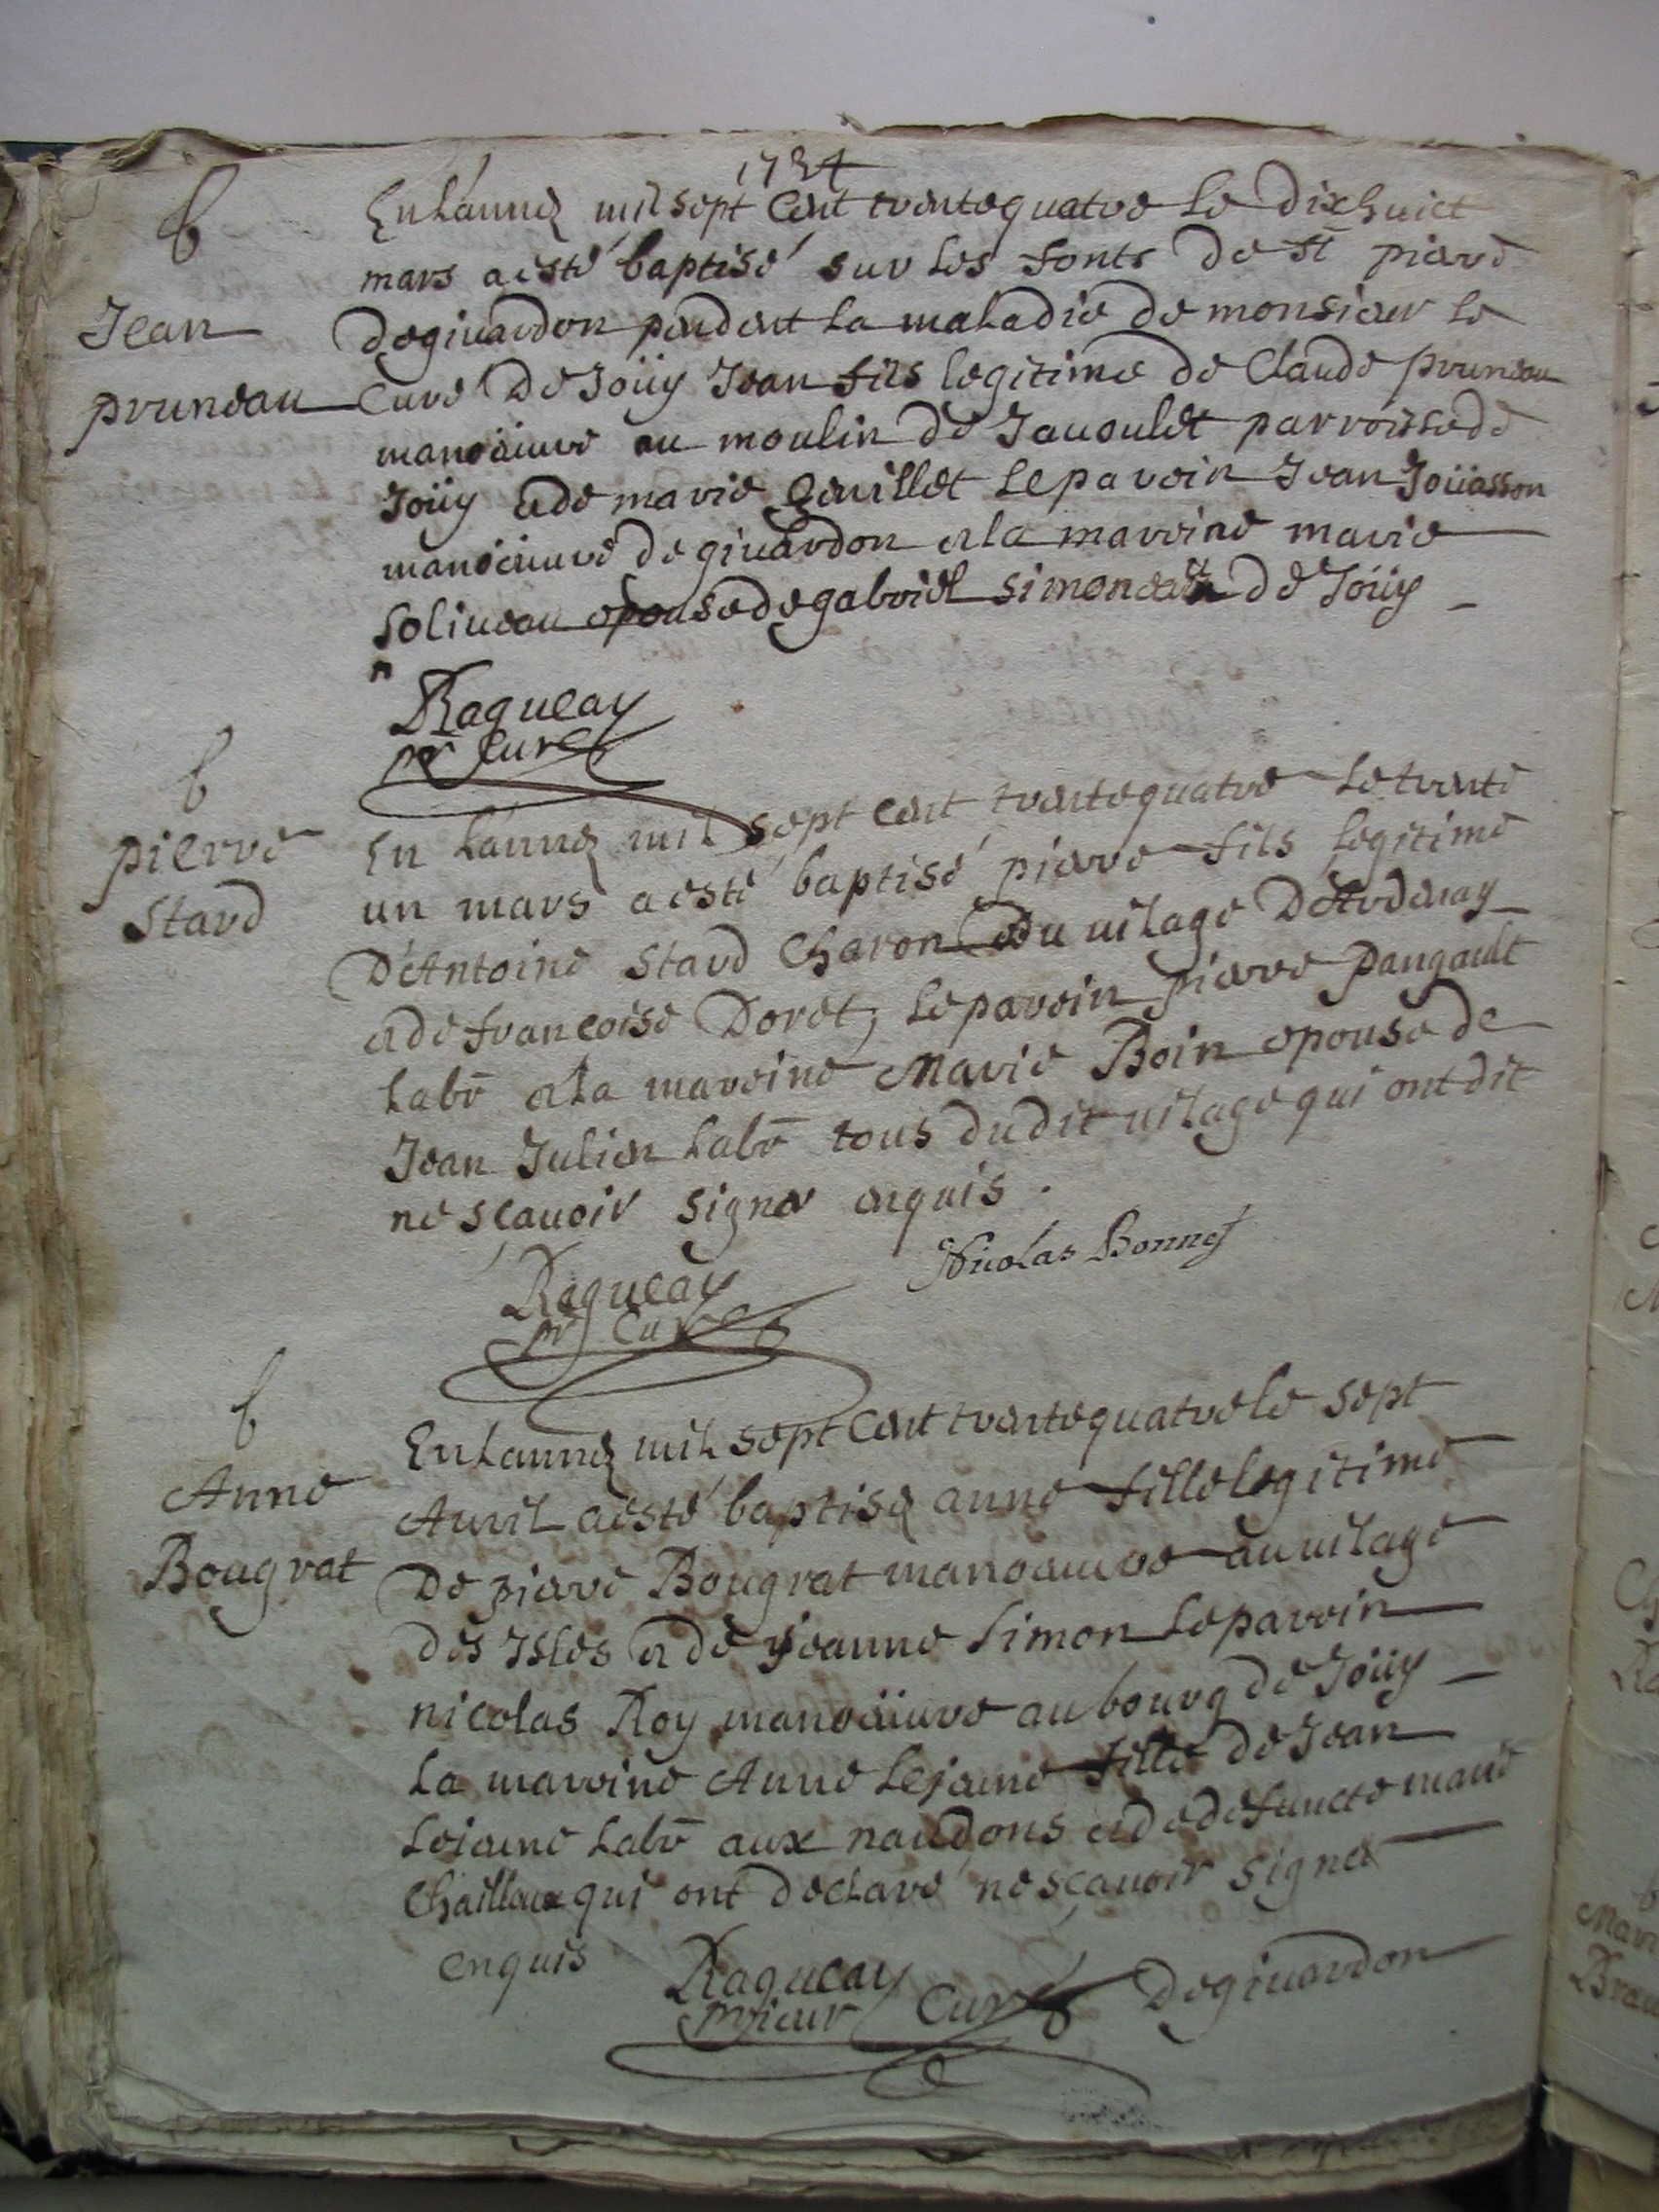 1734
b
Jean
pruneau
En Lanneé mil sept Cent trentequatre Le Dixhuict
mars a esté baptisé sur Les fonts De st pierre
Degivardon pendent La maladie De monsieur Le
Curé De Joüy Jean fils legitime De Claude pruneau
manoeuvre au moulin De Javoulet parroisse de
Joüy et de marie Le parein Jean Joüasson
manoeuvre De givardon et la mareine marie
Solineau epouse de gabriel Simoneau De Joüy
Raqueau
pr Curé
b
pierre
Stard
En Lanneé mil sept cent trentequatre Le trente
un mars a esté baptisé pierre fils legitime
D'Antoine Stard Charon du vilage D'Ardenay
et de francoise Doret, Le parein pierre Pangault
Labr et La mareine Marie Boin epouse de
Jean Julien Labr tous dudit vilage qui ont dit
ne scavoir signer enquis.
Raqueau
pr Curé
Nicolas Bonnet
b
Anne
Bougrat
En Lanneé mil sept Cent trentequatre le sept
Avril a esté baptiseé anne fille legitime
De pierre Bougrat manoeuvre au vilage
des Isles et de jeanne Simon Le parein
nicolas Roy manoeuvre au bourg de Joüy
La mareine Anne Lejeune fille de Jean
Lejeune Labr aux naudons et de defuncte marie
Chailloux qui ont declaré ne scavoir signer
enquis
Raqueau
prieur Curé Degivardon